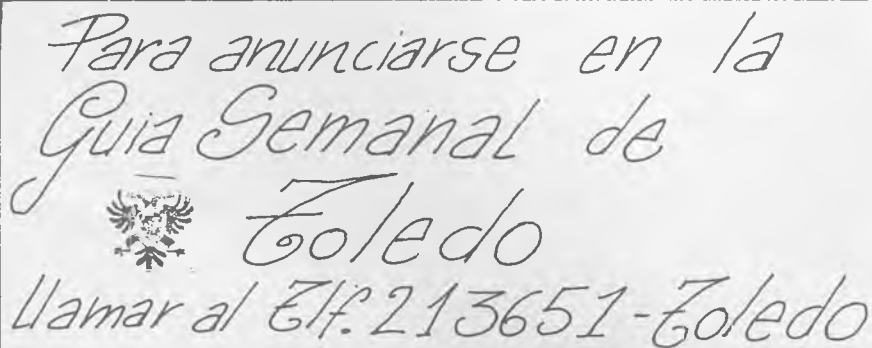 Para anunciarse en la
Guia Semanal de
Toledo
llamar al Tlf. 213651-Toledo